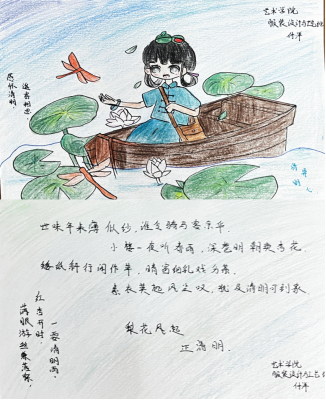 艺术学院
服装设计与工艺
思怀清明
清明
世味年来薄似纱，谁令骑马客京华。
小楼一夜听春雨，深巷明朝卖杏花。
矮纸斜行闲作草，晴窗细乳戏分茶。
素衣莫起风尘叹，犹及清明可到家。
梨花风起
正清明
红杏开时
一霎清明雨
落絮
艺术学院
服装设计与工艺